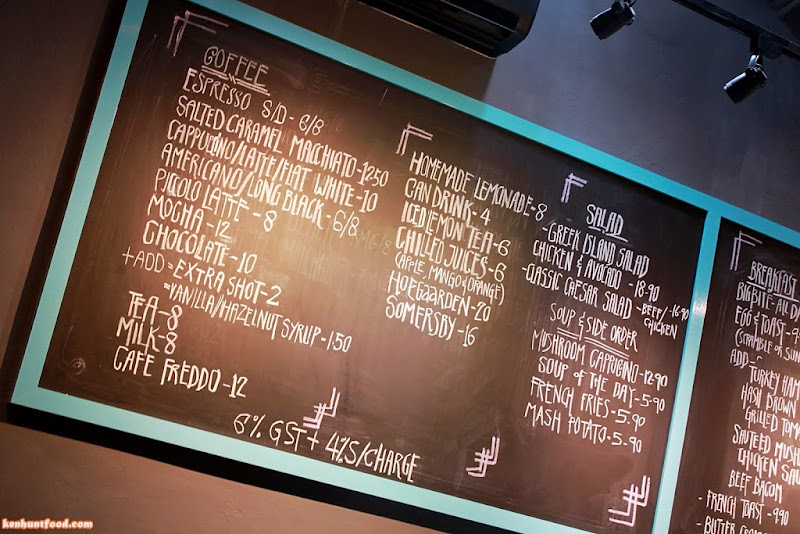 COFFEE
ESPRESSO S/D - 6/8
SALTED CARAMEL MACCHIATO - 12.50
CAPPUCINO/LATTE/FLAT WHITE - 10
AMERICANO/LONG BLACK - 6/8
PICCOLO LATTE - 8
MOCHA - 12
CHOCOLATE - 10
+ADD = EXTRA SHOT - 2
= VANILLA/HAZELNUT SYRUP - 1.50
TEA - 8
MILK - 8
CAFE FREDDO - 12
6% GST + 4% S/CHARGE
HOMEMADE LEMONADE - 8
CAN DRINK - 4
ICED LEMON TEA - 6
CHILLED JUICES - 6
(APPLE, MANGO & ORANGE)
HOEGAARDEN - 20
SOMERSBY - 16
SALAD
- GREEK ISLAND SALAD
CHICKEN & AVOCADO - 18.90
- CLASSIC CAESAR SALAD - BEEF/ - 16.90
CHICKEN
SOUP & SIDE ORDER
MUSHROOM CAPPUCINO - 12.90
SOUP OF THE DAY - 5.90
FRENCH FRIES - 5.90
MASH POTATO - 5.90
BREAKFAST
BIG BITE - ALL DA
EGG & TOAST - 9
(SCRAMBLE OR SUN
ADD -
TURKEY HAM
HASH BROWN
GRILLED TOM
SAUTEED MUSH
CHICKEN SAU
BEEF BACON
- FRENCH TOAST - 9.90
- BUTTER
kenhuntfood.com